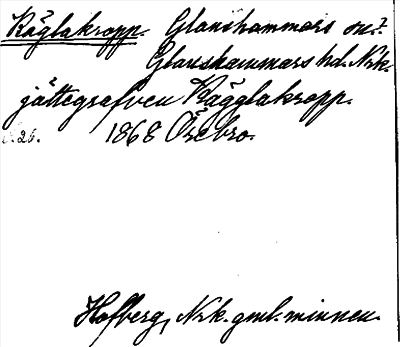 Räglakropp. Glanshammars sn.
Glanshammars hd. Nrk.
jättegrafven Rägglakropp.
s. 26. 1868 Örebro.
Hofberg, Nrk. gml. minnen.